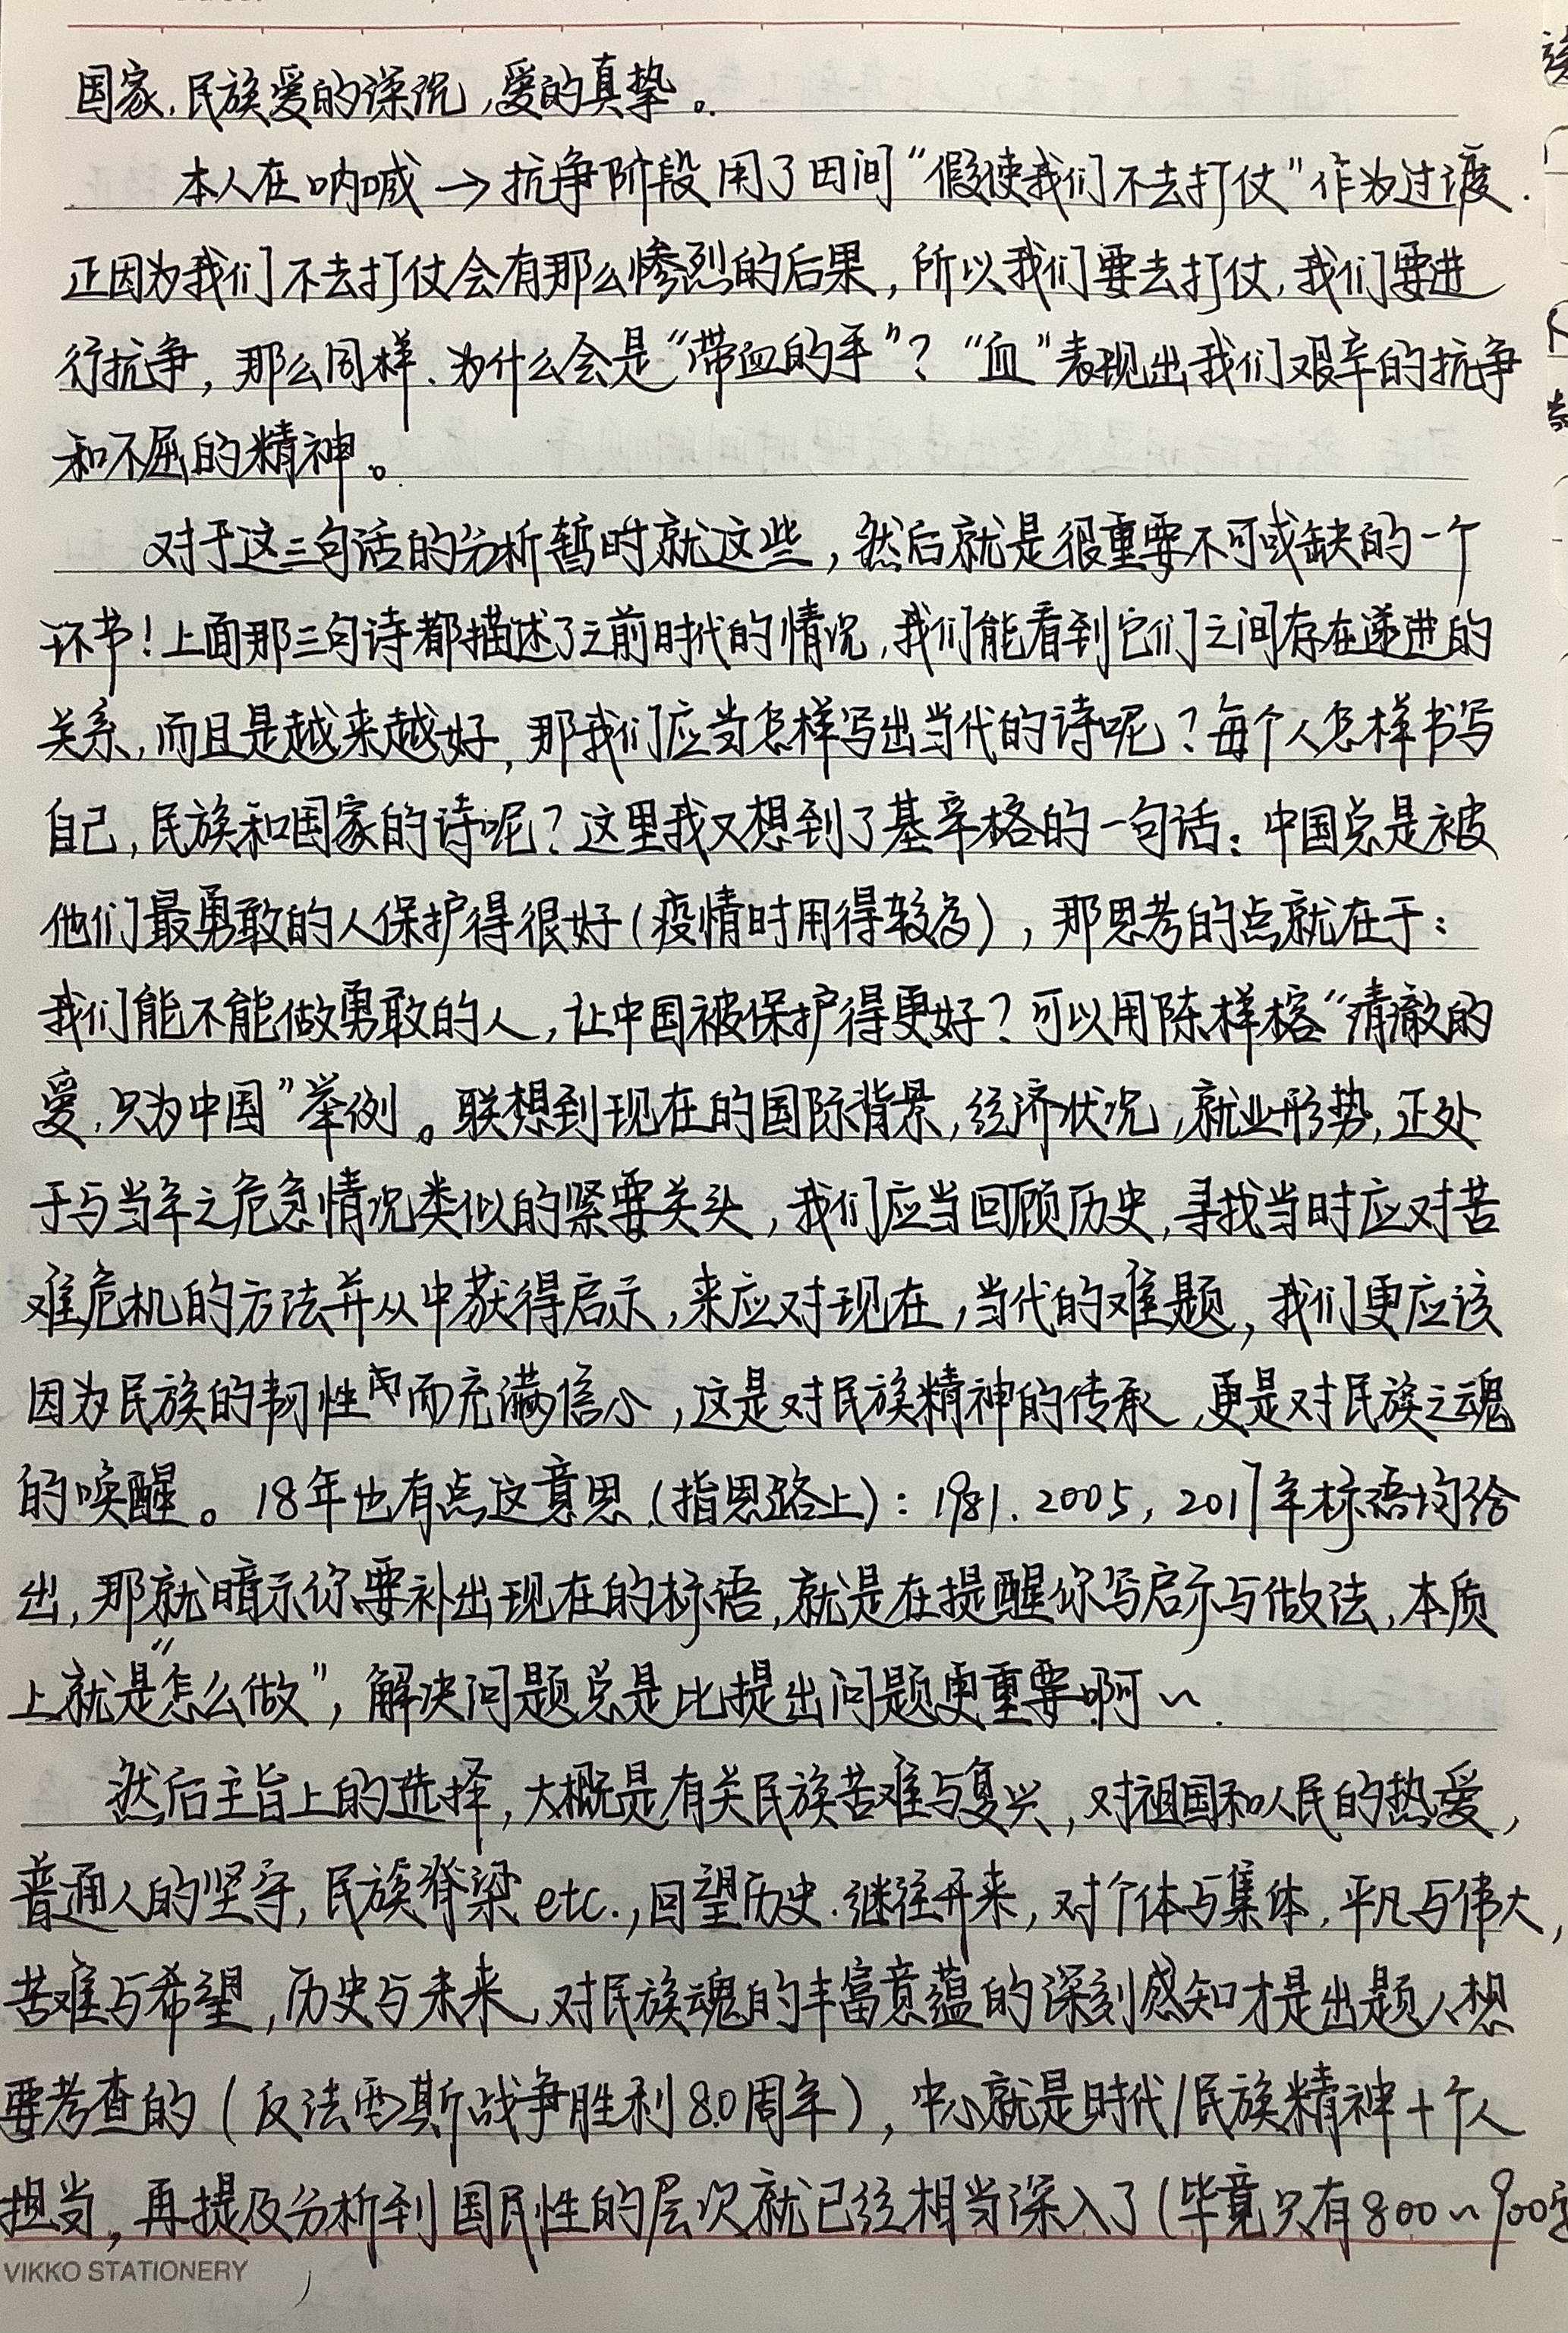 国家,民族爱的深沉,爱的真挚。
本人在呐喊→抗争阶段用了田间“假使我们不去打仗”作为过渡.
正因为我们不去打仗会有那么惨烈的后果,所以我们要去打仗,我们要进
行抗争,那么同样.为什么会是“带血的手”?“血”表现出我们艰辛的抗争
和不屈的精神。
对于这三句话的分析暂时就这些,然后就是很重要不可或缺的一个
环节!上面那三句诗都描述了之前时代的情况,我们能看到它们之间存在递进的
关系,而且是越来越好,那我们应当怎样写出当代的诗呢?每个人怎样书写
自己,民族和国家的诗呢?这里我又想到了基辛格的一句话:中国总是被
他们最勇敢的人保护得很好(疫情时用得较多),那思考的点就在于:
我们能不能做勇敢的人,让中国被保护得更好?可以用陈祥榕“清澈的
爱,只为中国”举例。联想到现在的国际背景,经济状况,就业形势,正处
于与当年之危急情况类似的紧要关头,我们应当回顾历史,寻找当时应对苦
难危机的方法并从中获得启示,来应对现在,当代的难题,我们更应该
因为民族的韧性而充满信心,这是对民族精神的传承,更是对民族之魂
的唤醒。18年也有点这意思(指思路上):1981.2005,2017年标语均给
出,那就暗示你要补出现在的标语,就是在提醒你写启示与做法,本质
上就是“怎么做”,解决问题总是比提出问题更重要啊~.
然后主旨上的选择,大概是有关民族苦难与复兴,对祖国和人民的热爱,
普通人的坚守,民族脊梁etc.,回望历史.继往开来,对个体与集体,平凡与伟大,
苦难与希望,历史与未来,对民族魂的丰富意蕴的深刻感知才是出题人想
要考查的(反法西斯战争胜利80周年),中心就是时代/民族精神+个人
担当,再提及分析到国民性的层次就已经相当深入了(毕竟只有800~900字
VIKKO STATIONERY